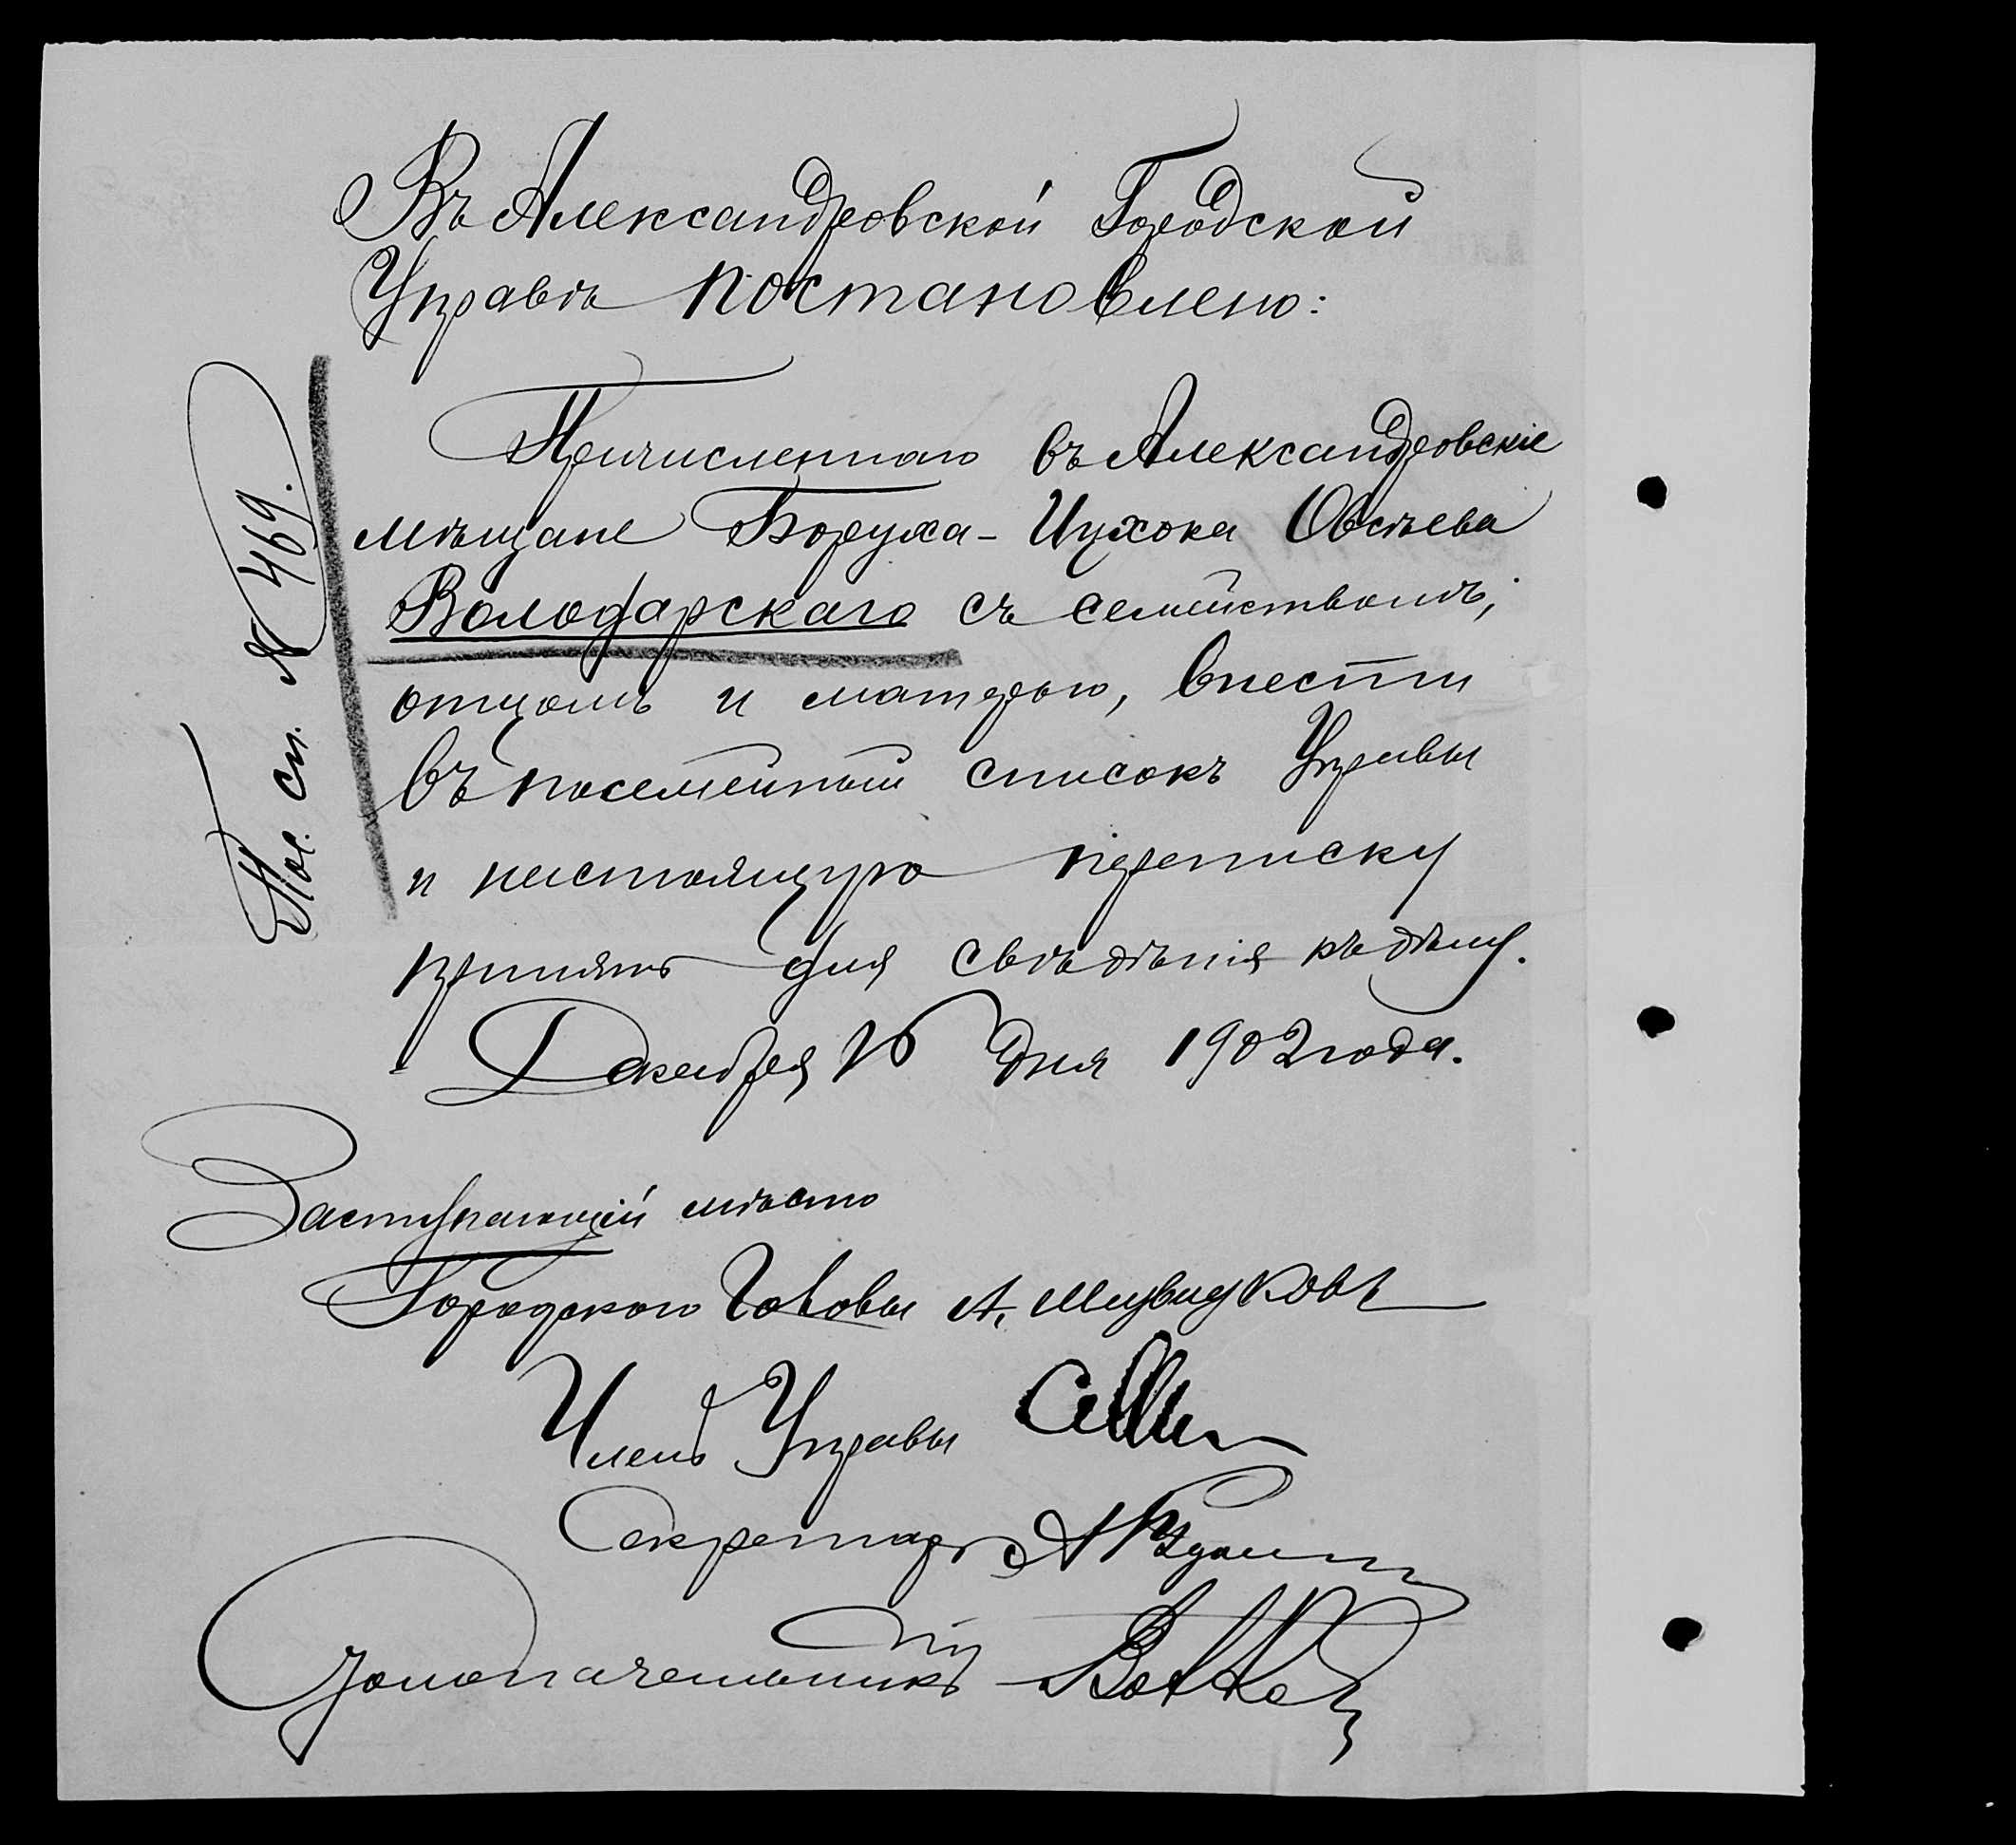 Въ Александровской Городской
Управѣ постановлено:
Пос. сп. № 469.
Причисленнаго въ Александровскіе
мѣщане Боруха-Ицхока Овсѣева
Володарскаго съ семействомъ,
отцомъ и матерью, внести
въ посемейный списокъ Управы
и настоящую переписку
принять для свѣдѣнія къ дѣлу.
Декабря 16 дня 1902 года.
Заступающій мѣсто
Городского Головы А.
Членъ Управы
Секретарь